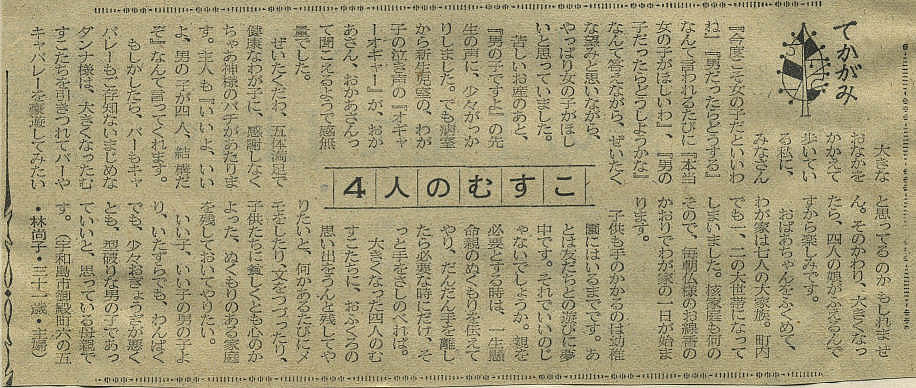 てかがみ
4人のむすこ
大きな
おなかを
かかえて
歩いてい
る私に、
みなさん
『今度こそ女の子だといいわ
ね』『男だったらどうする』
なんて言われるたびに『本当
女の子がほしいわ』、『男の
子だったらどうしようかな』
なんて答えながら、ぜいたく
な望みと思いながら、
やっぱり女の子がほし
いと思っていました。
苦しいお産のあと、
『男の子ですよ』の先
生の声に、少々がっか
りしました。でも病室
から新生児室の、わが
子の泣き声の『オギャ
ーオギャー』が、おか
あさん、おかあさんっ
て聞こえるようで感無
量でした。
ぜいたくだわ、五体満足で
健康なわが子に、感謝しなく
ちゃあ神様のバチがあたりま
す。主人も『いいよ、いい
よ、男の子が四人、結構だ
ぞ』なんて言ってくれます。
もしかしたら、バーもキャ
バレーもご存知ないまじめな
ダンナ様は、大きくなったむ
すこたちを引きつれてバーや
キャバレーを豪遊してみたい
と思ってるのかもしれませ
ん。そのかわり、大きくなっ
たら、四人の娘がふえるんで
すから楽しみです。
おばあちゃんをふくめて、
わが家は七人の大家族。町内
でも一、二の大世帯になって
しまいました。核家庭も何の
そので、毎朝仏様のお線香の
かおりでわが家の一日が始ま
ります。
子供も手のかかるのは幼稚
園にはいるまでです。あ
とは友だちとの遊びに夢
中です。それでいいのじ
ゃないでしょうか。親を
必要とする時は、一生懸
命親のぬくもりを伝えて
やり、だんだん手を離し
たら必要な時にだけ、そ
っと手をさしのべれば。
大きくなった四人のむ
すこたちに、おふくろの
思い出をうんと残してや
りたいと、何かあるたびにメ
モをしたり、文をつづったり、
子供たちに貧しくとも心のか
よった、ぬくもりのある家庭
を残しておいてやりたい。
いい子、いい子の男の子よ
り、いたずらでも、わんぱく
でも、少々おぎょうぎが悪く
とも、型破りな男の子であっ
ていいと、思っている母親で
す。(宇和島市御殿町中の五
・林尚子・三十一歳・主婦)